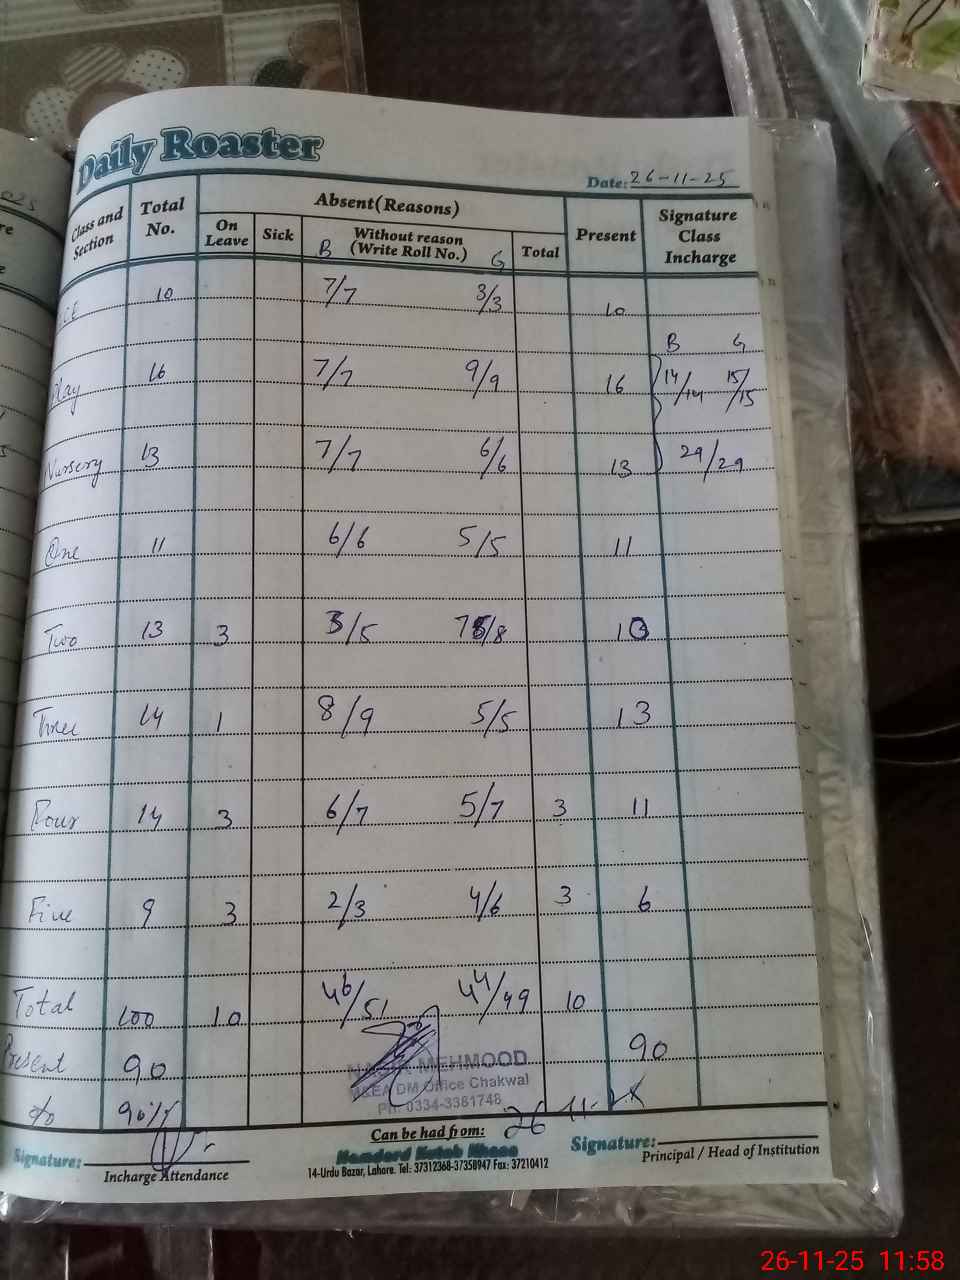 Daily Roaster
Date: 26-11-25
Class and Section Total No. Absent(Reasons) Present Signature Class Incharge
On Leave Sick Without reason (Write Roll No.) Total
B G
ECE 10 7/7 3/3 10
B G
Play 16 7/7 9/9 16 14/14 15/15
Nursery 13 7/7 6/6 13 29/29
One 11 6/6 5/5 11
Two 13 3 /5 /8 10
Three 14 1 8/9 5/5 13
Four 14 3 6/7 5/7 3 11
Five 9 3 2/3 4/6 3 6
Total 100 10 46/51 44/49 10
Present 90 90
% 90%
MEHMOOD
M&EA DM Office Chakwal
Ph: 0334-3361748
26-11-25
Signature: Incharge Attendance
Can be had from:
Hamdard Kutab Khana
14-Urdu Bazar, Lahore. Tel: 37312368-37358947 Fax: 37210412
Signature: Principal / Head of Institution
26-11-25 11:58